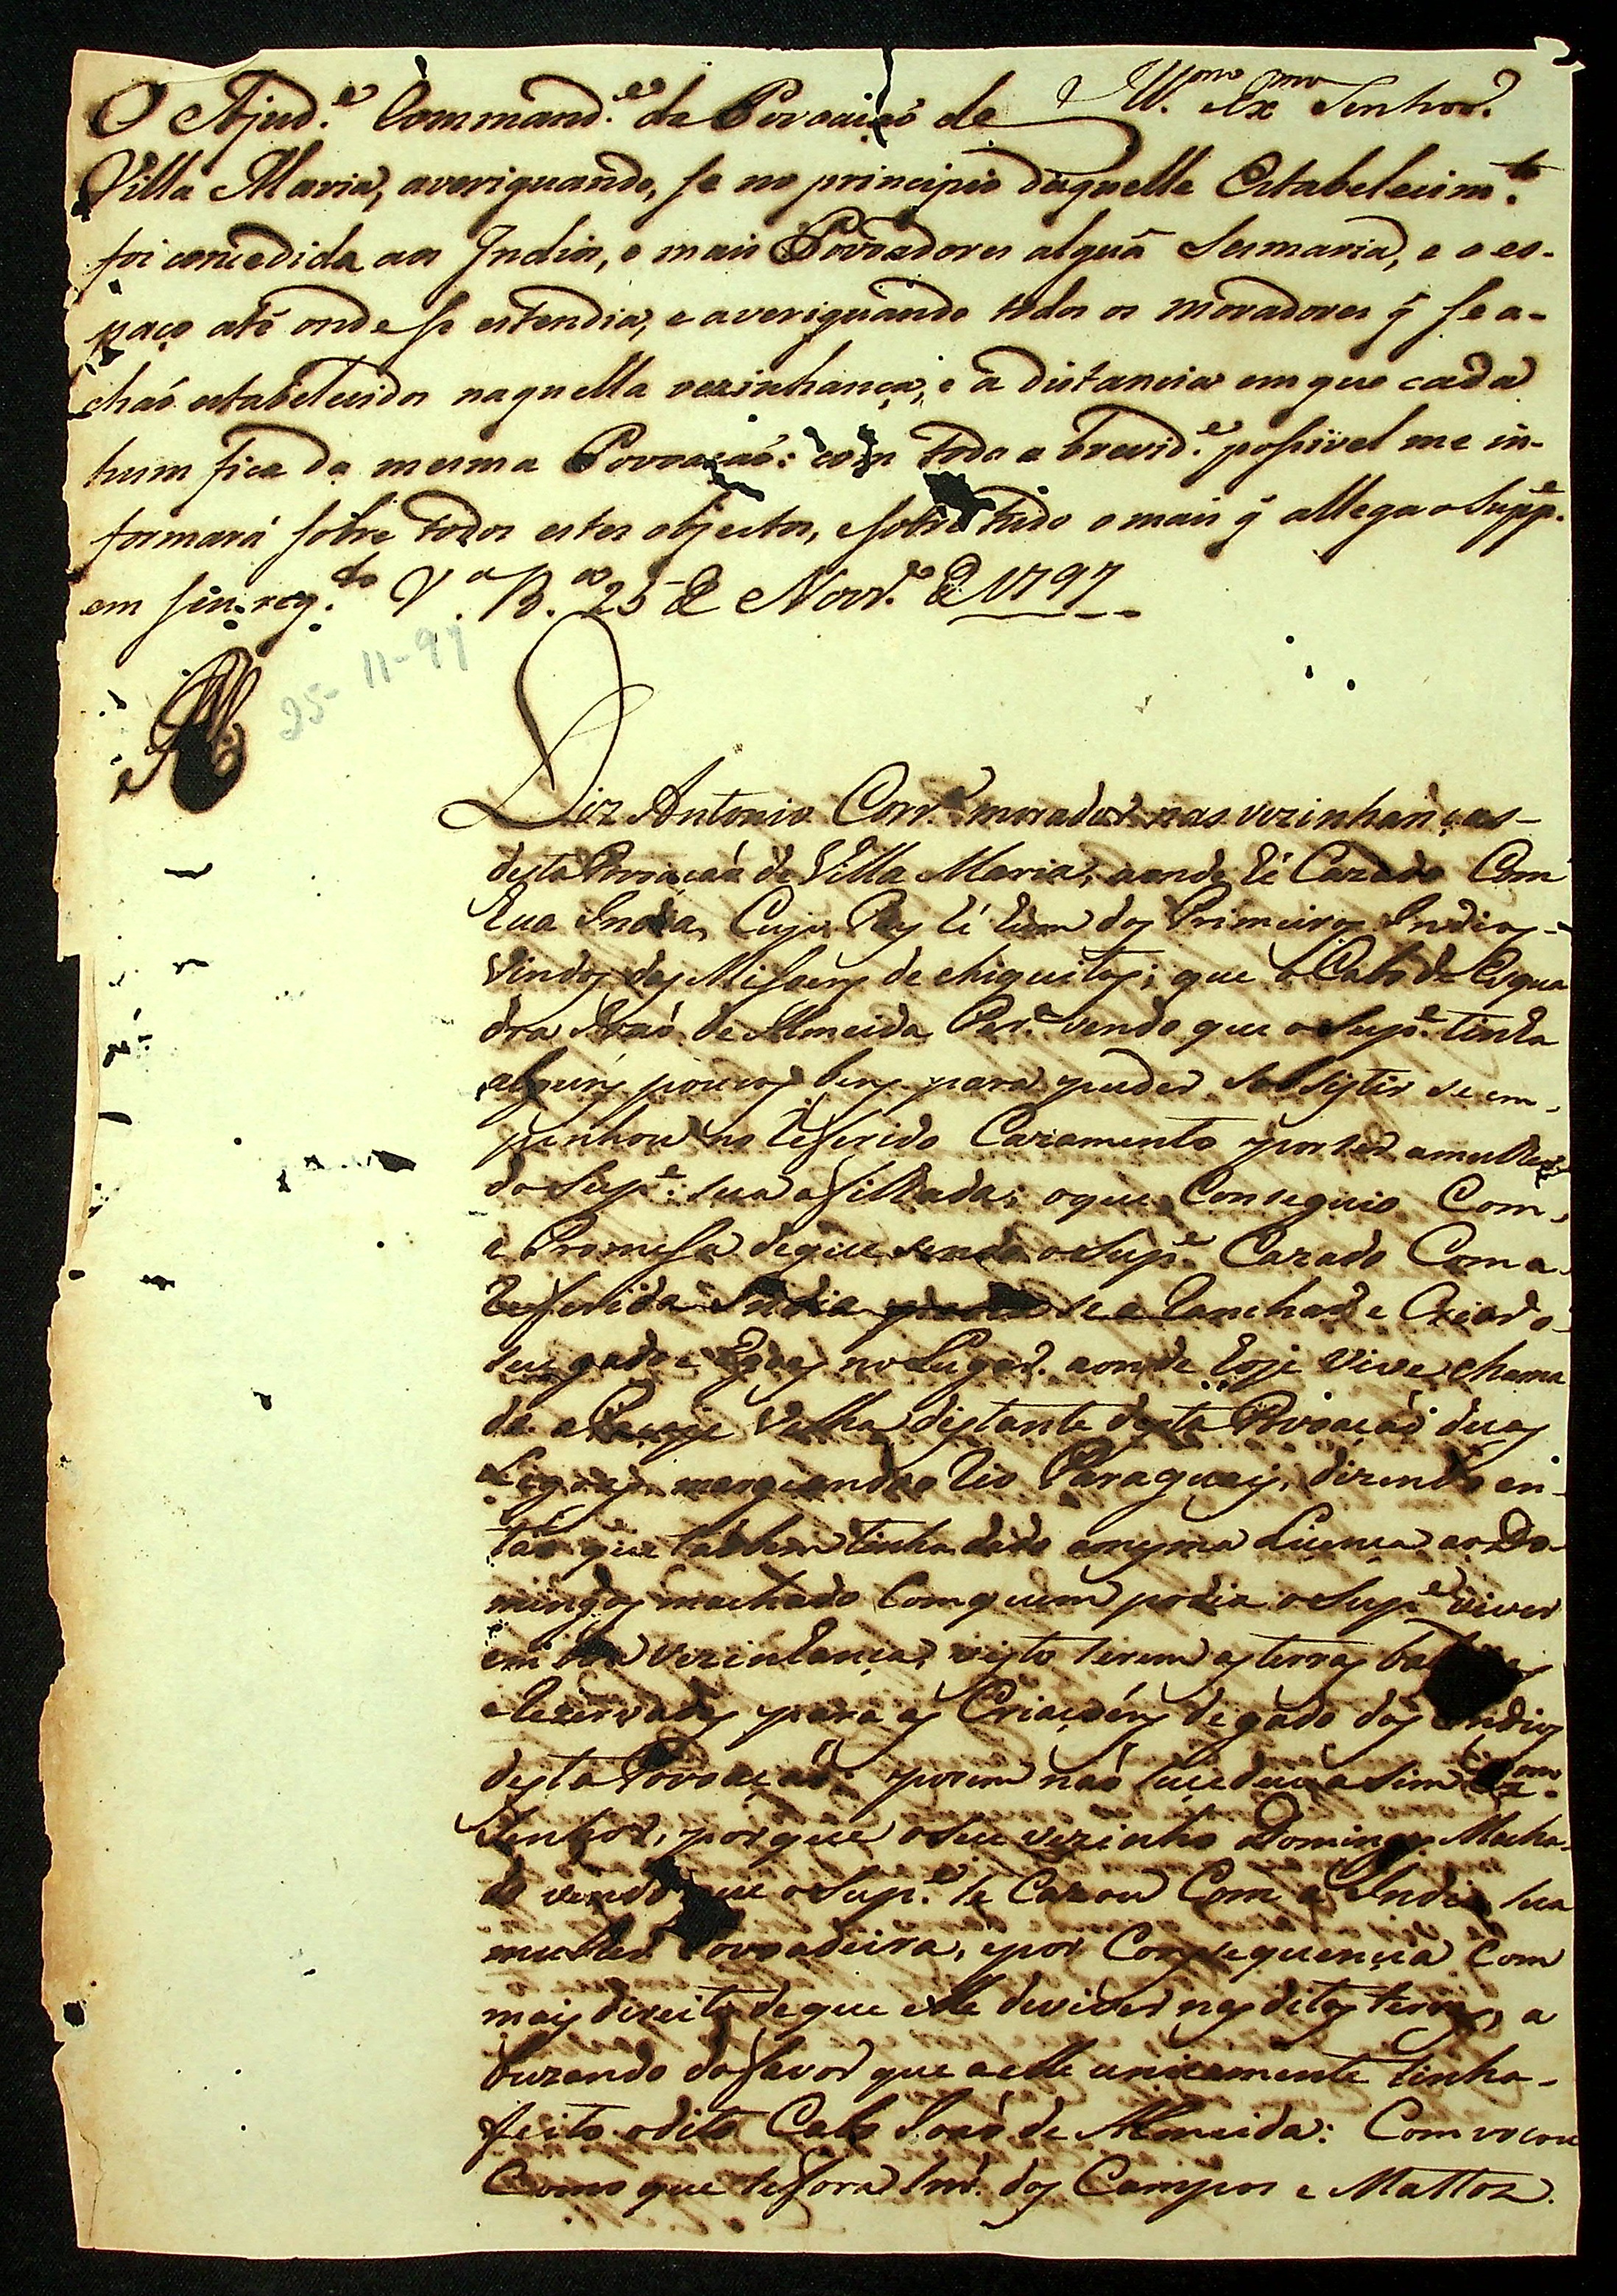 Ill.mo e Ex.mo Senhor.
O Ajud.e Command.e da Povoação de
Villa Maria, averiguando, se no principio daquelle Estabelecim.to
foi concedida aos Indios, e mais Povoadores algũa Sesmaria, e o es-
paço até onde se estendia, e averiguando todos os moradores q̃ se a-
chaõ estabelecidos naquella vezinhança, e a distancia em que cada
hum fica da mesma Povoação: com toda a brevid.e possivel me in-
formará sobre todos estes objectos, e sobre tudo o mais q̃ allega o Supp.e
em seu req.to V.a B.a 25 de Novr.o de 1797
25-11-97
Diz Antonio Corr.a morador nas vezinhanças
desta Povoação de Villa Maria, aonde hé Cazado Com
hua India, Cujo Pay hé hum dos Primeiros Indios
Vindos das Missoens de chiquitos; que o Cabo de Esqua
dra João de Almeida Per.a vendo que o Sup.e tinha
alguns poucos bens para puder Subsistir se em-
penhou no Referido Cazamento por ser a mulher
do Sup.e sua afilhada; o que Conseguio Com
a Promessa de que sendo o Sup.e Cazado Com a
Referida India se a Ranchar e Criar o
seu gado e Egoas no Lugar aonde hoje Vive chama
do a Velha distante desta Povoação duas
Legoas margeando o Rio Paraguay, dizendo en-
tão que tambem tinha dado a mesma Licença ao Do-
mingos machado Com quem podia o Sup.e viver
em boa vezinhança, visto serem as terras
e Rezervadas para as Criaçoens de gado dos Indios
desta Povoação: porem não sucedeu asim Ex.mo
Senhor, porque o seu vezinho Domingos Macha
do vendo que o Sup.e se Cazou Com a India sua
mulher Povoadeira, e por Consequencia Com
mais direito de que elle de viver nas ditas terras, a
buzando do favor que a elle unicamente tinha
feito o dito Cabo João de Almeida: Comvocou
Como que se fora Snr. dos Campos e Mattos